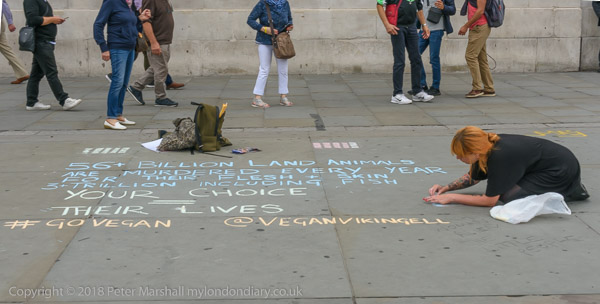 56+ Billion Land Animals
are murdered every year
for their flesh & skin
3+ Trillion including fish
Your = Choice
Their = Lives
#GoVegan @VeganVikingELL
Copyright © 2018 Peter Marshall mylondondiary.co.uk